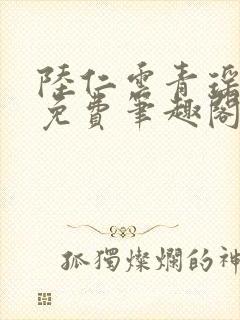 陸仁雲青瑶
免費筆趣閣
孤獨燦爛的神